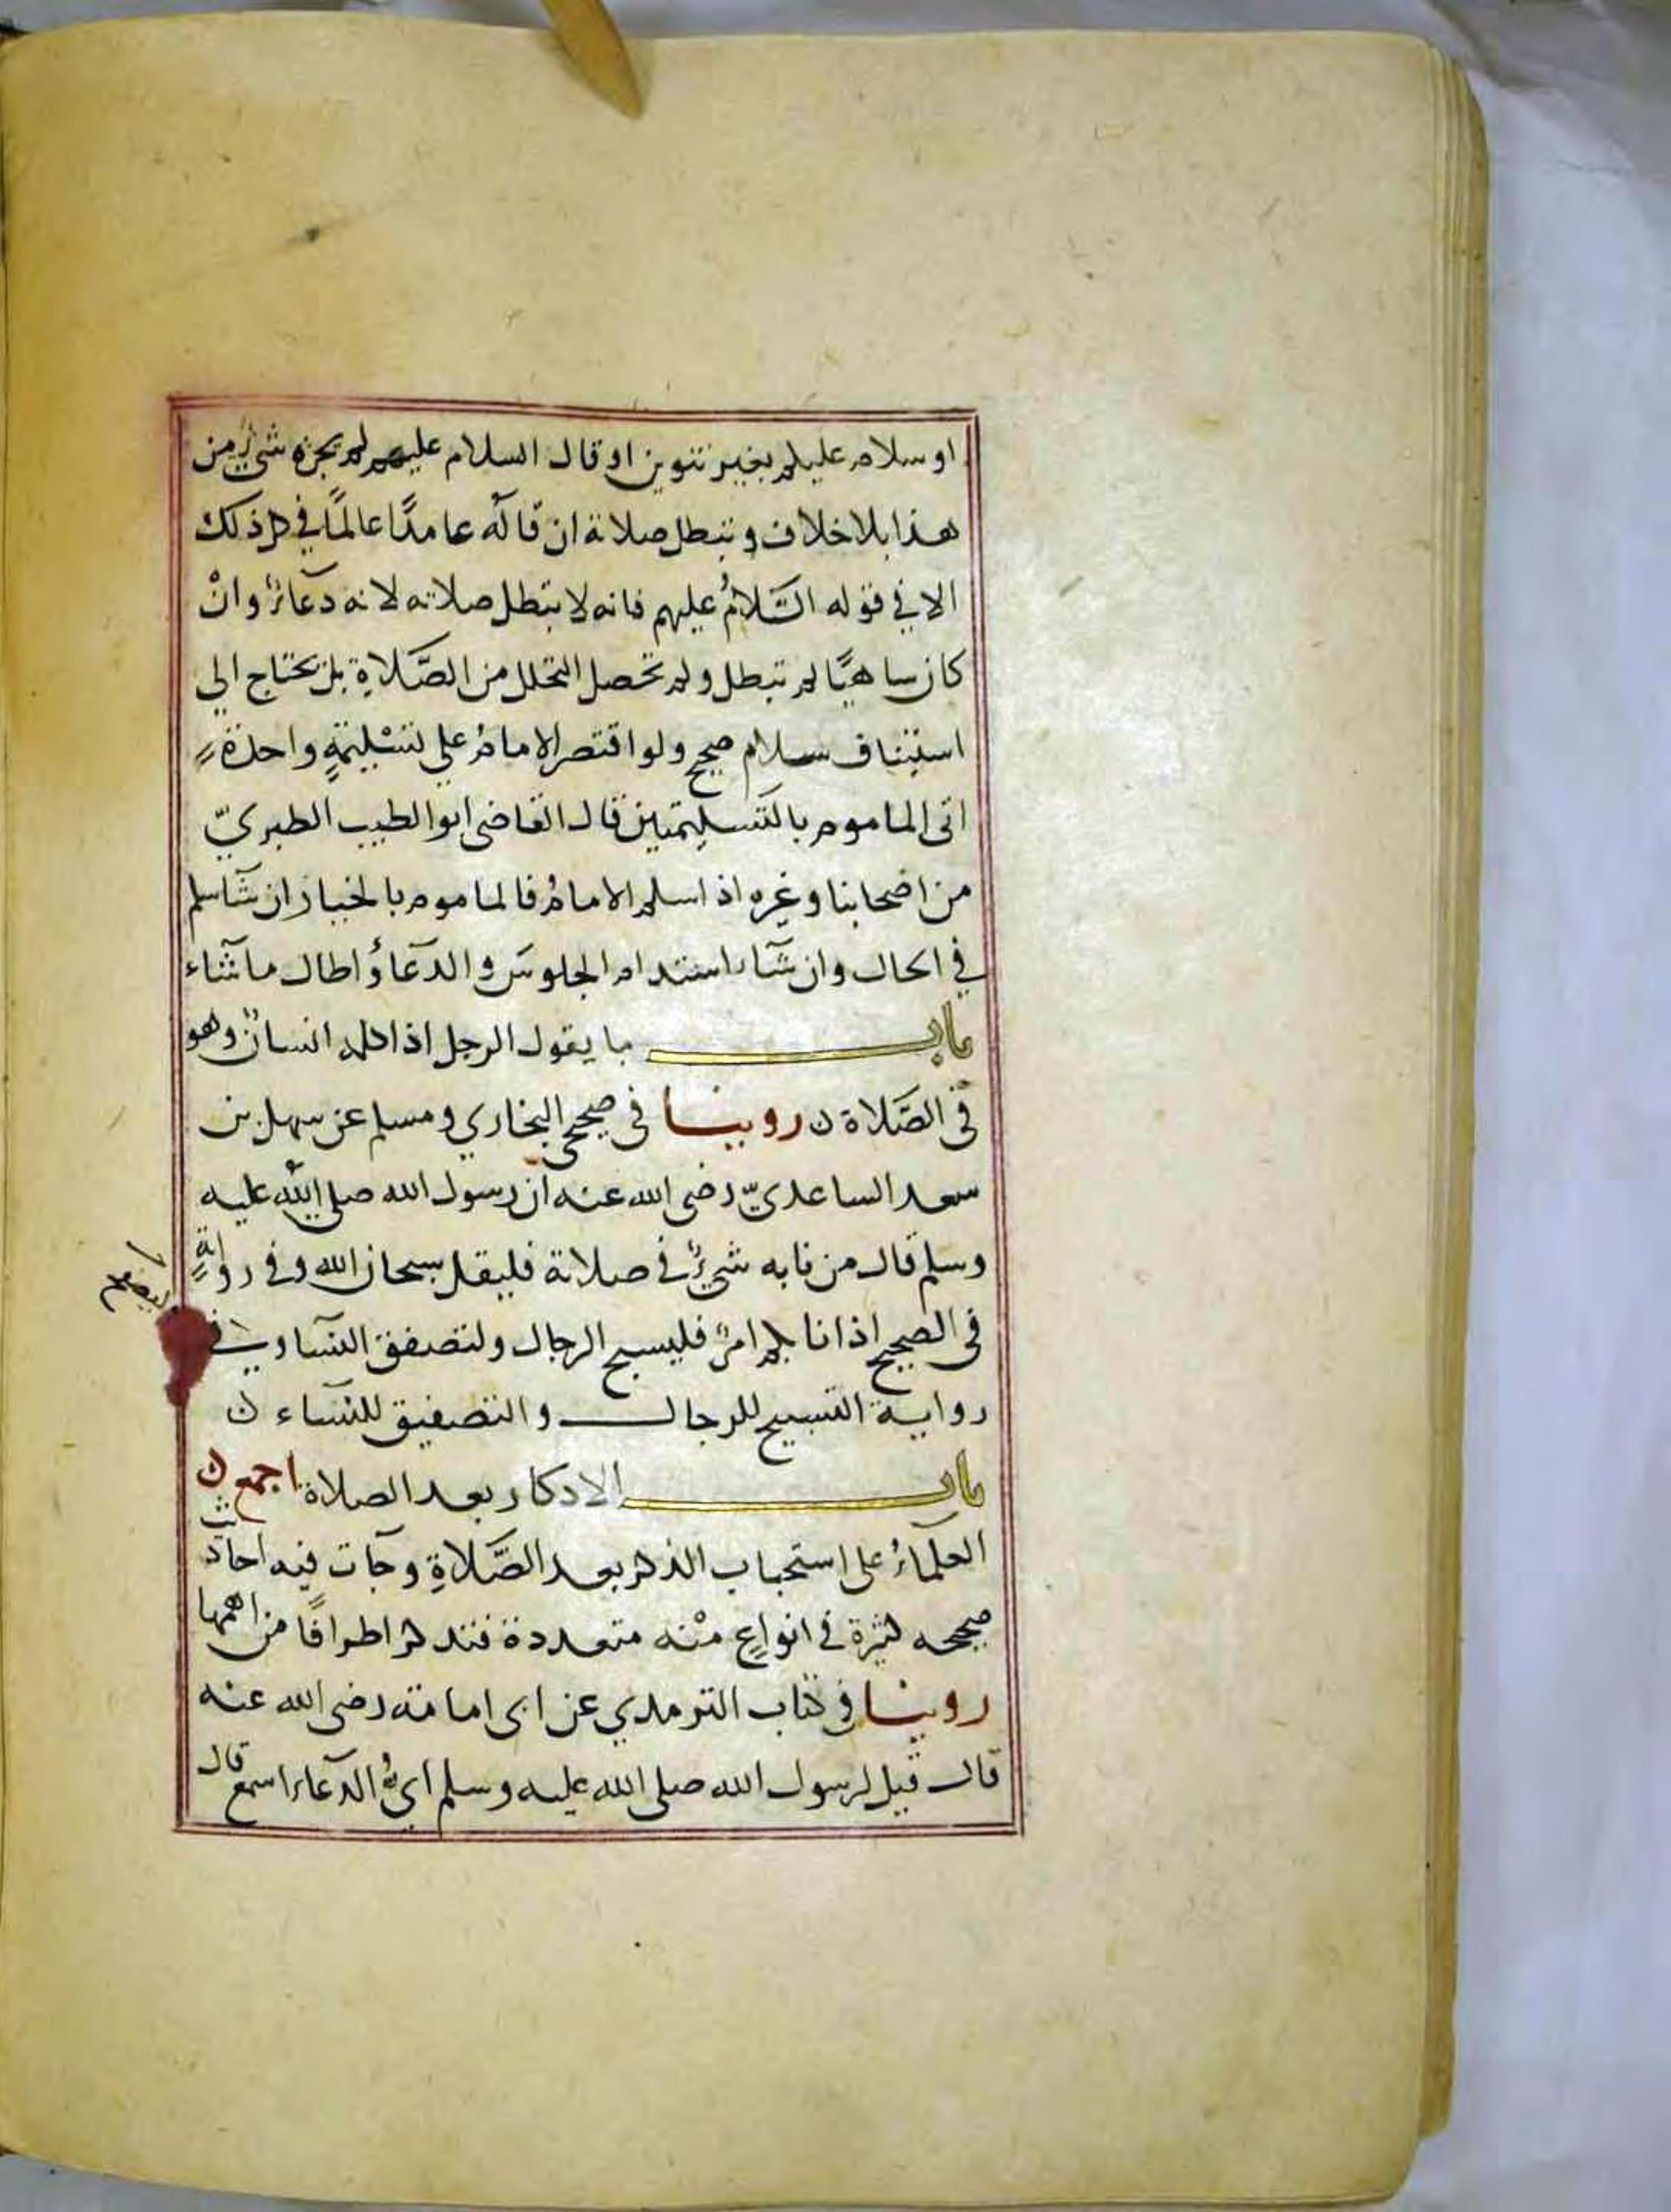 او سلام عليكم بغير تنوين او قال السلام عليهم لم يجزه شيءٌ من
هذا بلا خلاف وتبطل صلاتة ان قاله عامدًا عالمًا في كل ذلك
الا في قوله السَّلامُ عليهم فانه لا تبطل صلاته لانه دعاءٌ وانْ
كان ساهيًا لم تبطل ولم تحصل التحلل من الصَّلاةِ بل يحتاج الي
استيناف سلام صحيح ولو اقتصر الامامُ علي تسْليمةٍ واحدةٍ
اتى الماموم بالتسليمتين قال القاضي ابو الطيب الطبريّ
من اصحابنا وغيره اذا سلم الامامُ فالماموم بالخيار ان شآ سلم
في الحال وان شآء استدام الجلوس والدعآ واطال ما شآء
باب ما يقول الرجل اذا كلمه انسانٌ وهو
في الصَّلاة ن روينا في صحيحي البخاري ومسلم عن سهل بن
سعد الساعديّ رضي الله عنه ان رسول الله صلى الله عليه
وسلم قال من نابه شيءٌ في صلاتة فليقل سبحان الله وفي روايةٍ
في الصحيح اذا نابكم امرٌ فليسبح الرجال ولتصفق النسا وفي
رواية التسبيح للرجال والتصفيق للنساء ن
باب الاذكار بعد الصلاة اجمع ن
العلمآءُ على استحباب الذكر بعد الصَّلاةِ وجآت فيه احاديث
صحيحه كثيرة في انواعٍ منْه متعددة فنذكر اطرافًا من اهمها
روينا في كتاب الترمذي عن ابى امامة رضي الله عنه
قال قيل لرسول الله صلى الله عليه وسلم ايُّ الدعآء اسمع قال